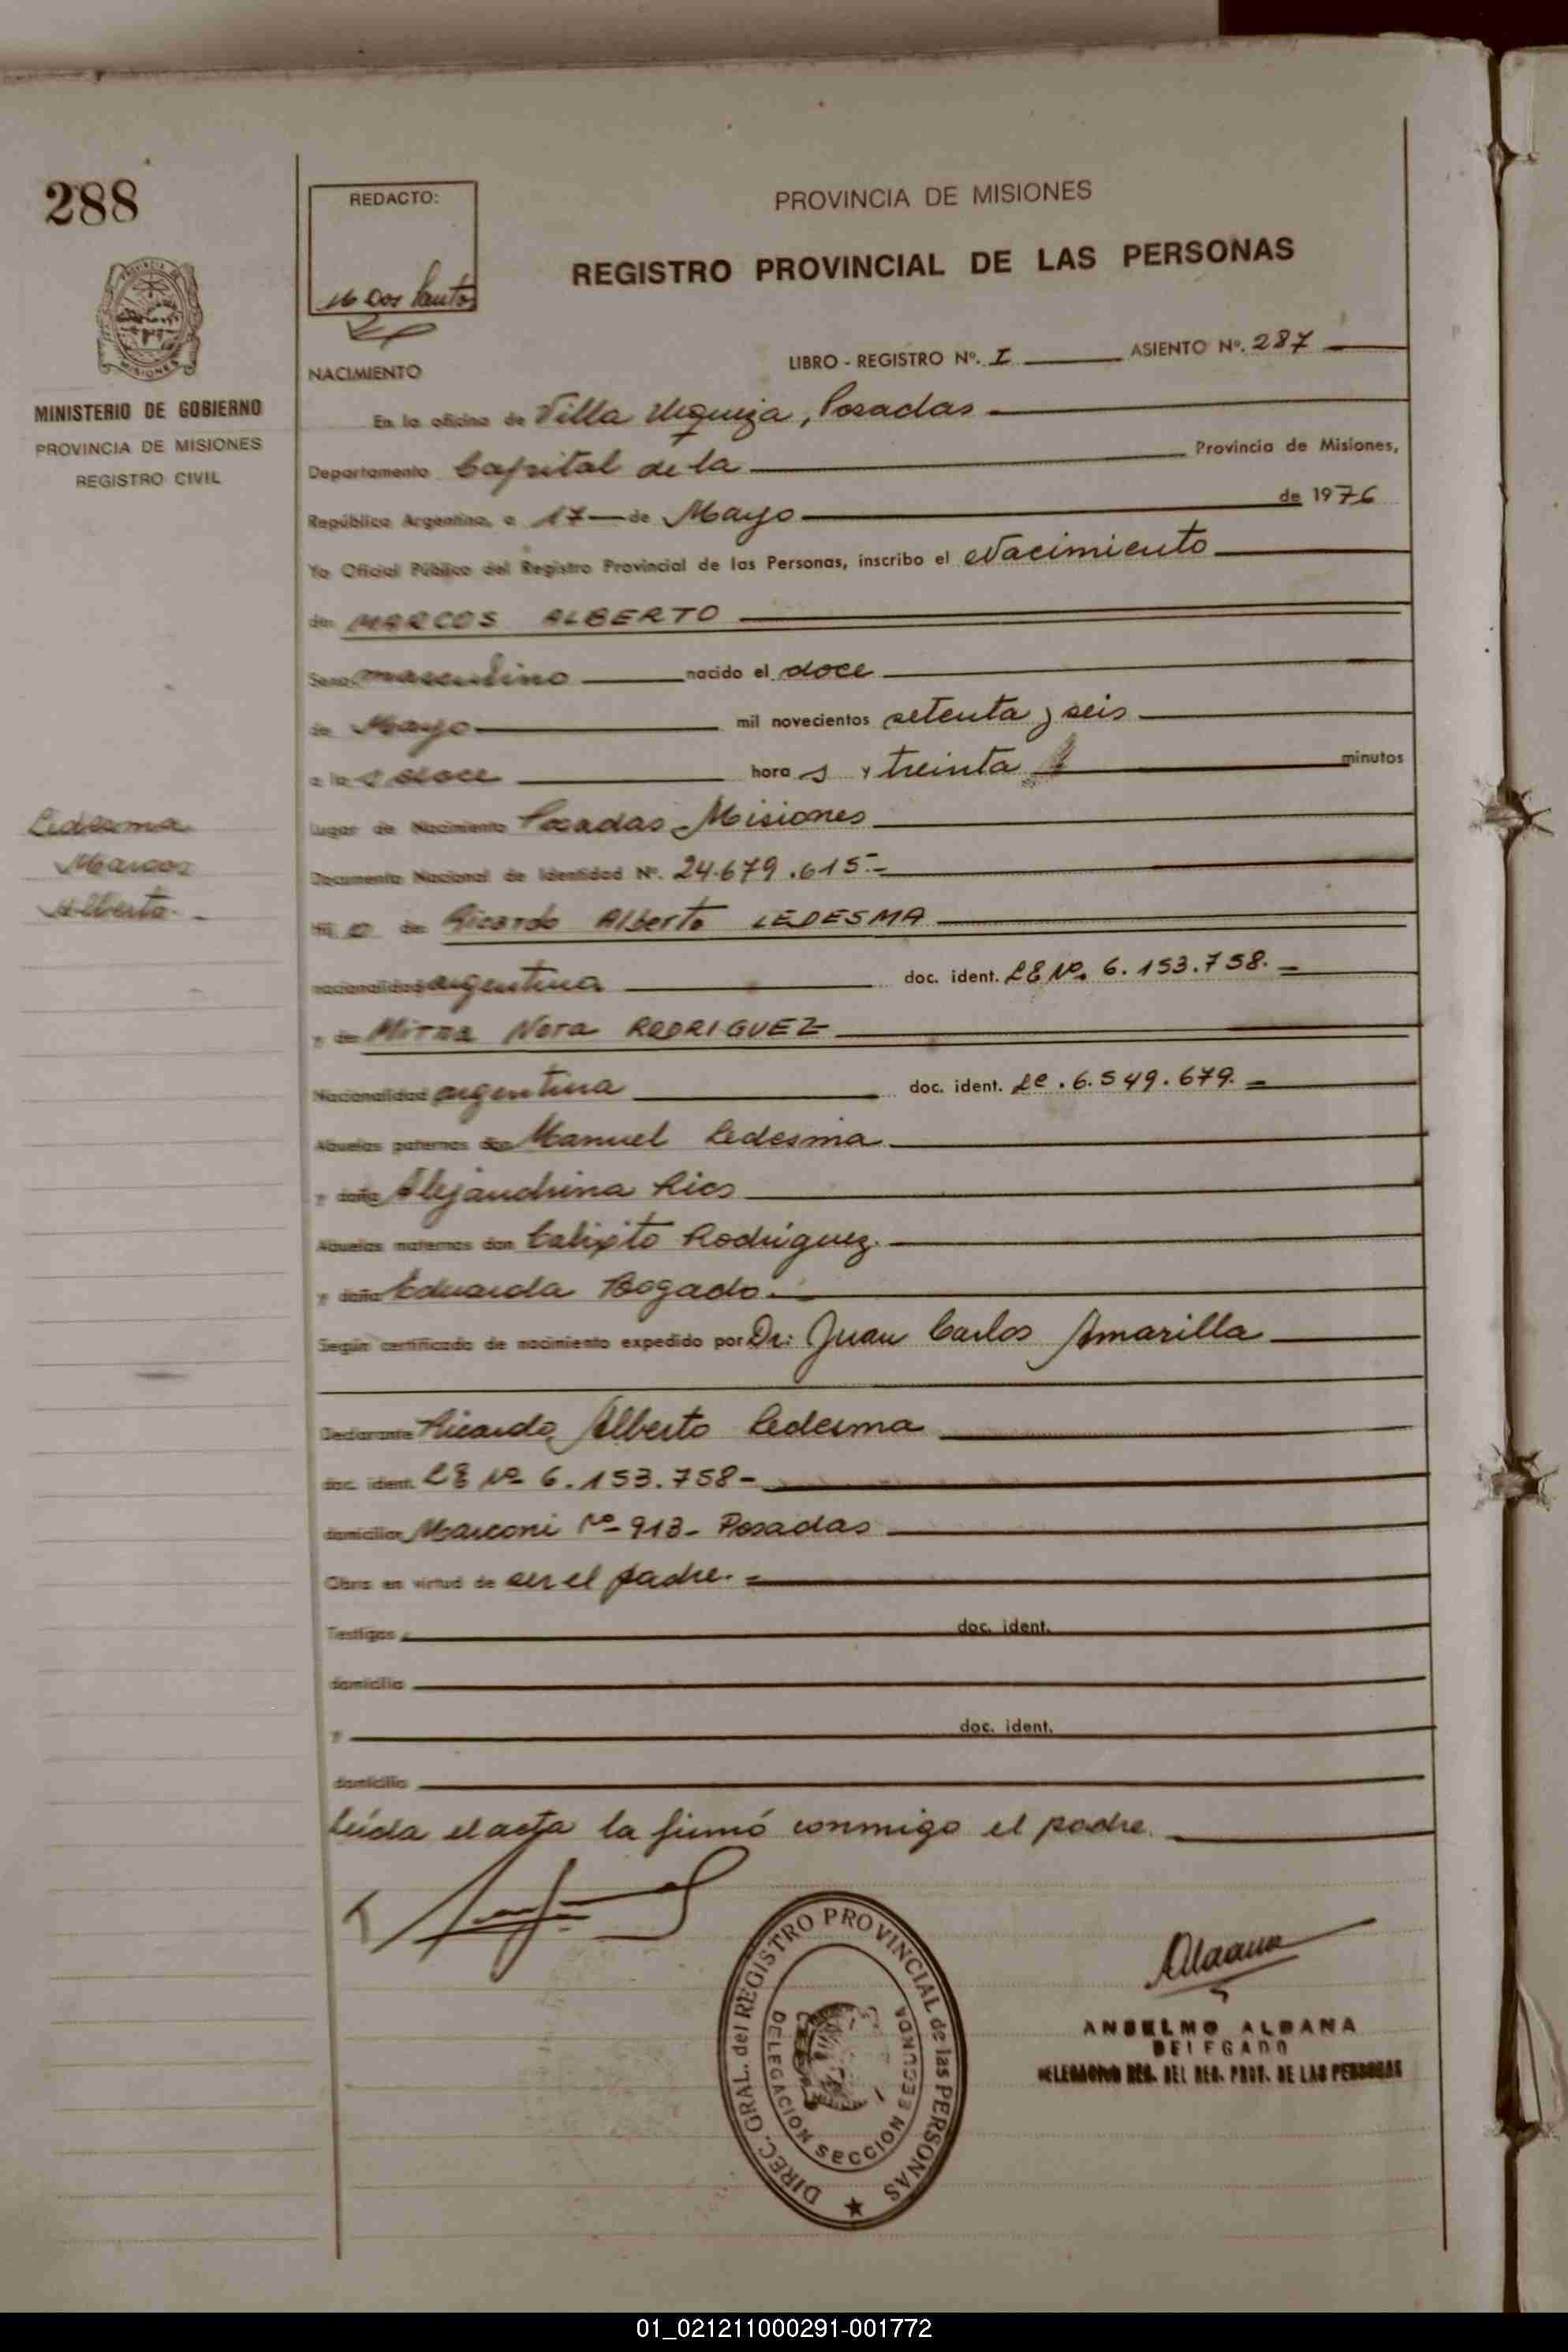 288
MINISTERIO DE GOBIERNO
PROVINCIA DE MISIONES
REGISTRO CIVIL
Ledesma
Marcos
Alberto.-
REDACTO:
Dos Santos
PROVINCIA DE MISIONES
REGISTRO PROVINCIAL DE LAS PERSONAS
LIBRO - REGISTRO Nº. I ASIENTO Nº. 287
NACIMIENTO
En la oficina de Villa Urquiza, Posadas
Departamento Capital de la Provincia de Misiones,
República Argentina, a 17 de Mayo de 1976
Yo Oficial Público del Registro Provincial de las Personas, inscribo el Nacimiento
de: MARCOS ALBERTO
Sexo masculino nacido el doce
de Mayo mil novecientos setenta y seis
a las doce horas y treinta minutos
Lugar de Nacimiento Posadas - Misiones
Documento Nacional de Identidad Nº. 24.679.615.-
Hijo de Ricardo Alberto LEDESMA
nacionalidad argentina doc. ident. LE Nº. 6.153.758.-
y de Mirna Nora RODRIGUEZ
Nacionalidad argentina doc. ident. Lc. 6.549.679.-
Abuelos paternos don Manuel Ledesma
y doña Alejandrina Rios
Abuelos maternos don Calixto Rodríguez.
y doña Eduarda Bogado.-
Según certificado de nacimiento expedido por Dr: Juan Carlos Amarilla
Declarante Ricardo Alberto Ledesma
doc. ident. LE Nº 6.153.758-
domicilio Marconi Nº 913- Posadas
Obra en virtud de ser el padre.-
Testigos doc. ident.
domicilio
y doc. ident.
domicilio
Leída el acta la firmó conmigo el padre.
DIREC. GRAL. del REGISTRO PROVINCIAL de las PERSONAS
DELEGACION SECCION SEGUNDA
ANSELMO ALDANA
DELEGADO
DELEGACION REG. DEL REG. PROV. DE LAS PERSONAS
01_021211000291-001772